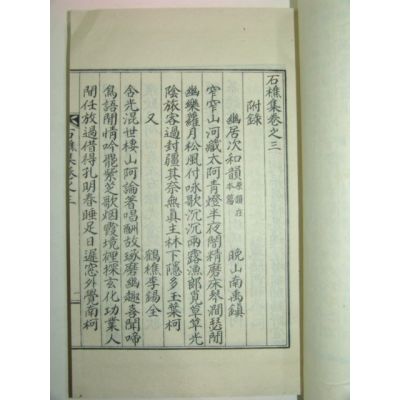 石樵集卷之三
附錄
幽居次和韻 原韻在本篇 晚山南禹鎭
窄窄山河藏太阿青燈半夜閒精磨床琴澗瑟閒
幽樂蘿月松風付咏歌沉沉兩露漁郞莧草草光
陰旅客過封疆其奈無眞主林下隱多玉葉柯
又 鶴樵李錫全
含光混世棲山阿論著唱酬故琢磨幽趣喜聞啼
鳥語閒情吟罷紫芝歌烟霞境裡探玄化功業人
間任放過借得孔明春睡足日遲窓外覺南柯
石樵集卷之三